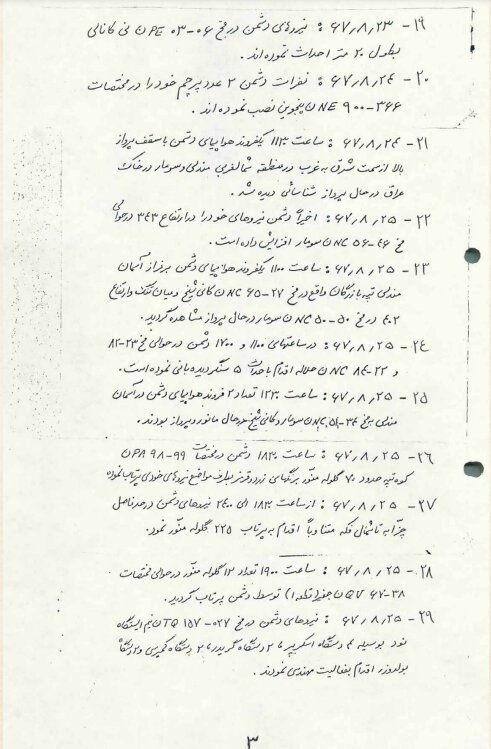 ۱۹- ۶۷٫۸٫۲۳ : نیروهای دشمن در مخ ۰۶-۰۳ OPE نی کانالی
بطول ۲۰ متر احداث نموده اند.
۲۰- ۶۷٫۸٫۲۴ : نفرات دشمن ۲ عدد پرچم خود را در مختصات
۳۶۶-۹۰۰ ONE پنجوین نصب نموده اند.
۲۱- ۶۷٫۸٫۲۴ : ساعت ۱۱۳۰ یکفروند هواپیمای دشمن با سقف پرواز
بالا از سمت شرق به غرب در منطقه شمالغربی مندلی و سومار در خاک
عراق در حال پرواز شناسائی دیده شد.
۲۲- ۶۷٫۸٫۲۵ : اخیراً دشمن نیروهای خود را در ارتفاع ۳۴۳ در حوالی
مخ ۴۶-۵۶ ONC سومار افزایش داده است.
۲۳- ۶۷٫۸٫۲۵ : ساعت ۱۱۰۰ یکفروند هواپیمای دشمن برفراز آسمان
مندلی تپه بازرگان واقع در مخ ۲۷-۶۵ ONC کانی شیخ و میان تنگ و ارتفاع
۴۰۲ در مخ ۵۰-۵۰ ONC سومار در حال پرواز مشاهده گردید.
۲۴- ۶۷٫۸٫۲۵ : در ساعتهای ۱۱۰۰ و ۱۷۰۰ دشمن در حوالی مخ ۲۳-۸۲
و ۲۲-۸۴ ONC حلاله اقدام باحداث ۵ سنگر دیده بانی نموده است.
۲۵- ۶۷٫۸٫۲۵ : ساعت ۱۲۳۰ تعداد ۲ فروند هواپیمای دشمن در آسمان
مندلی مخ ۳۴-۵۱ ONC سومار و کانی شیخ در حال مانور و پرواز بودند.
۲۶- ۶۷٫۸٫۲۵ : ساعت ۱۸۳۰ دشمن در مختصات ۹۹-۹۸ OPA
کوه تپه حدود ۷۰ گلوله منور برنگهای زرد و قرمز بطرف مواضع نیروهای خودی پرتاب نموده
۲۷- ۶۷٫۸٫۲۵ : از ساعت ۱۸۳۰ الی ۲۴۰۰ نیروهای دشمن در حدفاصل
چزابه تا شمال فکه متناوباً اقدام به پرتاب ۲۲۵ گلوله منور نمود.
۲۸- ۶۷٫۸٫۲۵ : ساعت ۱۹۰۰ تعداد ۱۲ گلوله منور در حوالی مختصات
۳۸-۶۷ OQV توسط دشمن پرتاب گردید.
۲۹- ۶۷٫۸٫۲۵ : نیروهای دشمن در مخ ۰۲۷-۱۵۷ OTQ نیم ایستگاه
نود بوسیله دستگاه اسکریپر ، ۲ دستگاه گریدر ، ۲ دستگاه کمپرسی و ۲ دستگاه
بولدوزر اقدام بفعالیت مهندسی نمودند.
۳